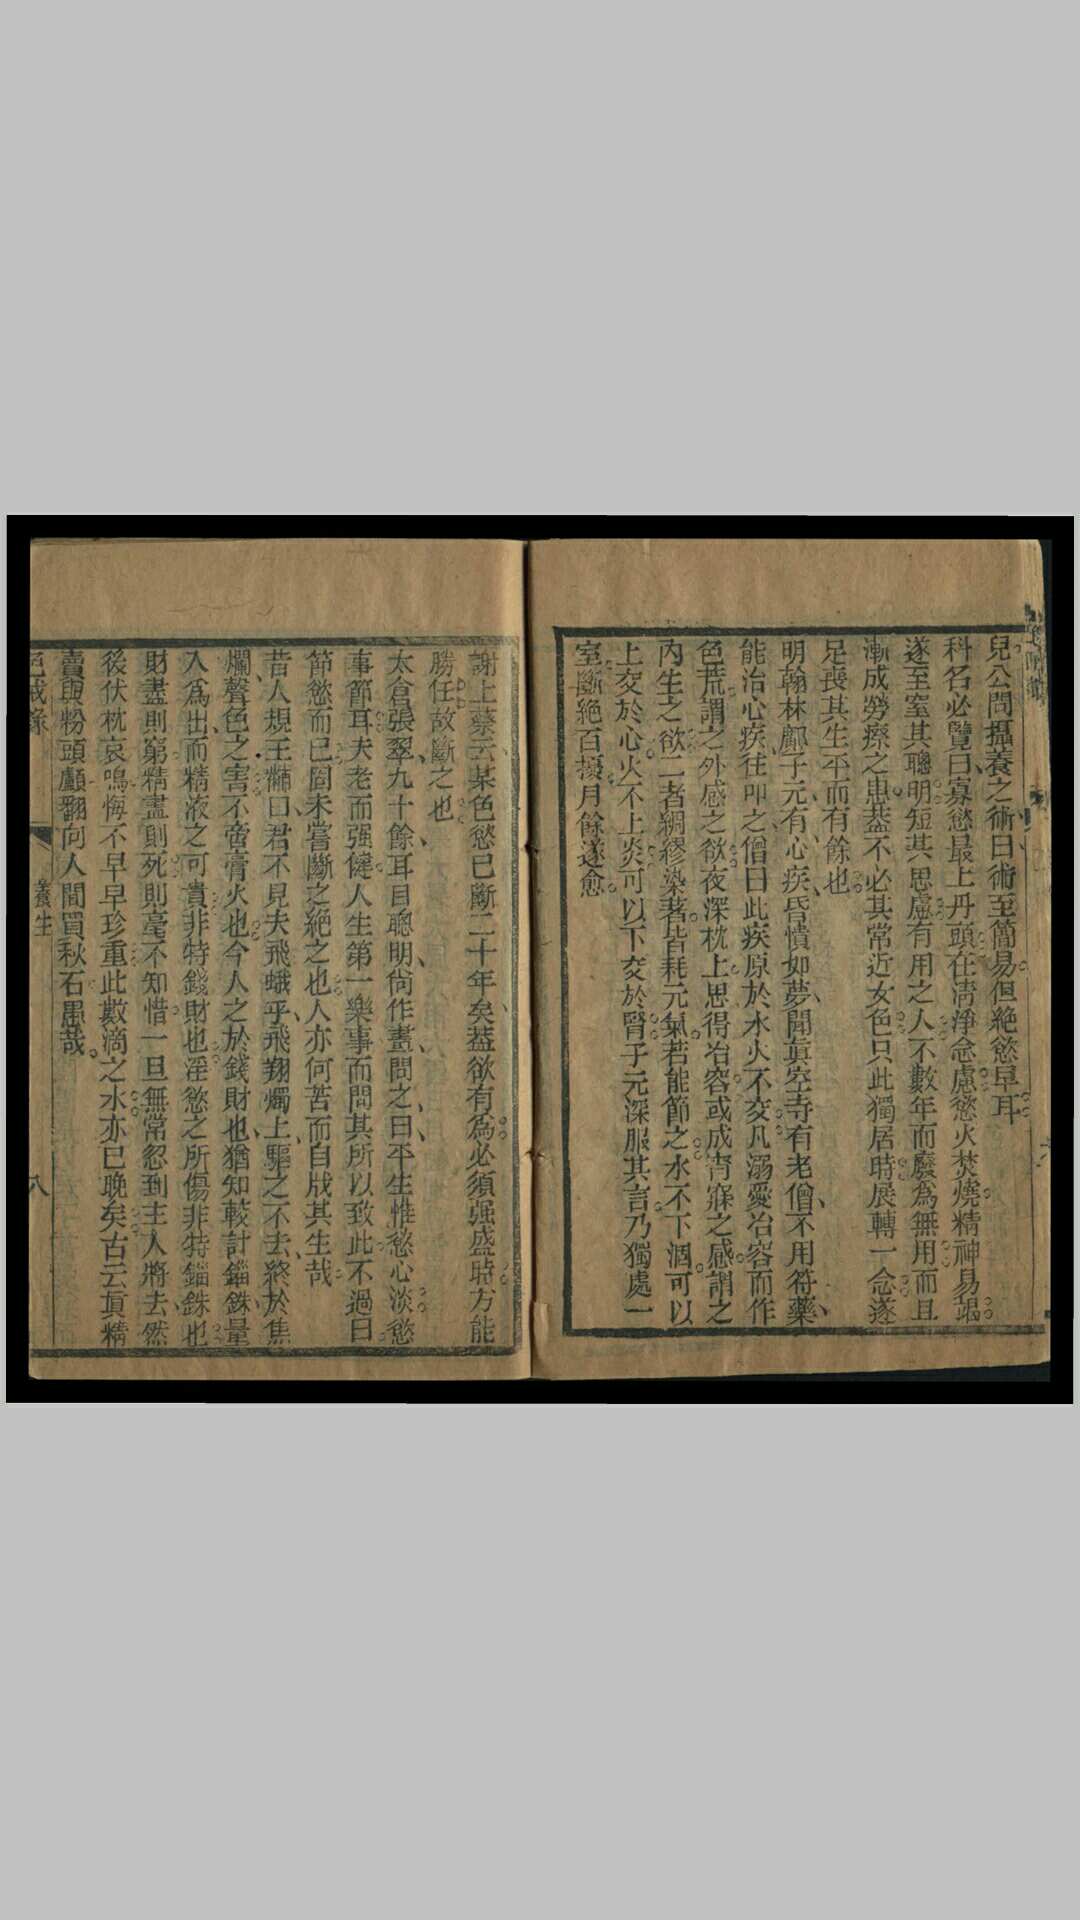 兒公問攝養之術曰術至簡易但絶慾早耳
科名必覽曰寡慾最上丹頭在淸淨念慮慾火焚燒精神易竭
遂至窒其聰明短其思慮有用之人不數年而廢為無用而且
漸成勞瘵之患葢不必其常近女色只此獨居時展轉一念遂
足喪其生平而有餘也
明翰林鄺子元有心疾昏憒如夢聞眞空寺有老僧不用符藥
能治心疾往叩之僧曰此疾原於水火不交凡溺愛冶容而作
色荒謂之外感之欲夜深枕上思得冶容或成宵寐之感謂之
內生之欲二者綢繆染著皆耗元氣若能節之水不下涸可以
上交於心火不上炎可以下交於腎子元深服其言乃獨處一
室斷絶百擾月餘遂愈
謝上蔡云某色慾已斷二十年矣葢欲有為必須强盛時方能
勝任故斷之也
太倉張翠九十餘耳目聰明尙作畫問之曰平生惟慾心淡慾
事節耳夫老而强健人生第一樂事而問其所以致此不過曰
節慾而已固未嘗斷之絶之也人亦何苦而自戕其生哉
昔人規王黼曰君不見夫飛蛾乎飛翔燭上驅之不去終於焦
爛聲色之害不啻膏火也今人之於錢財也猶知較計錙銖量
入爲出而精液之可貴非特錢財也淫慾之所傷非特錙銖也
財盡則窮精盡則死則毫不知惜一旦無常忽到主人將去然
後伏枕哀鳴悔不早早珍重此數滴之水亦已晚矣古云眞精
賣與粉頭顱翻向人間買秋石愚哉
色戒錄
養生
八